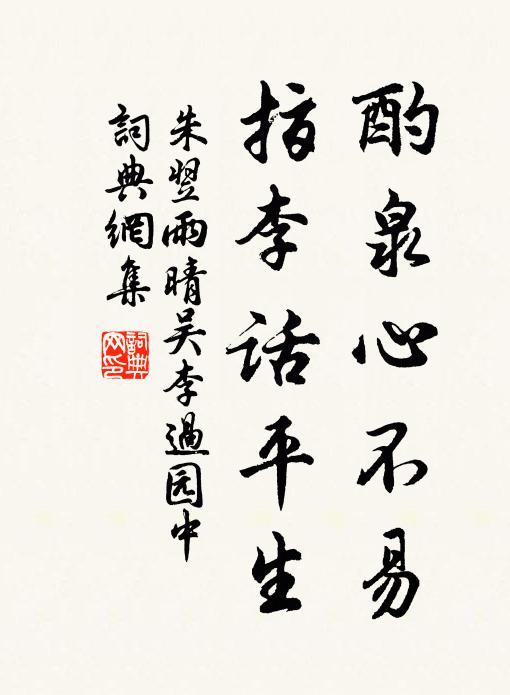 酌泉心不易
指李话平生
朱翌雨晴吴李過园中
詞典網集
詞典
网印